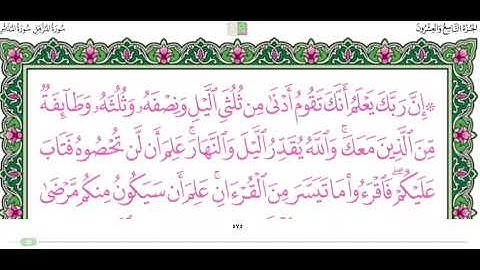 الجزء التاسع والعشرون سورة المزمل سورة المدثر
۞ إِنَّ رَبَّكَ يَعْلَمُ أَنَّكَ تَقُومُ أَدْنَىٰ مِن ثُلُثَىِ ٱلَّيْلِ وَنِصْفَهُۥ وَثُلُثَهُۥ وَطَآئِفَةٌ
مِّنَ ٱلَّذِينَ مَعَكَ ۚ وَٱللَّهُ يُقَدِّرُ ٱلَّيْلَ وَٱلنَّهَارَ ۚ عَلِمَ أَن لَّن تُحْصُوهُ فَتَابَ
عَلَيْكُمْ ۖ فَٱقْرَءُوا۟ مَا تَيَسَّرَ مِنَ ٱلْقُرْءَانِ ۚ عَلِمَ أَن سَيَكُونُ مِنكُم مَّرْضَىٰ
٥٧٥